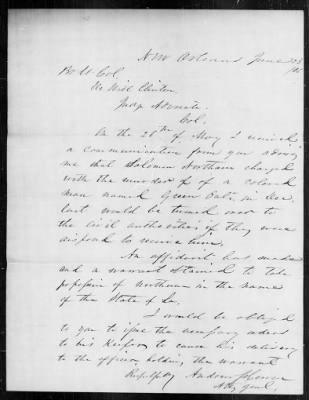 New Orleans June 23
Bvt Lt Col.
De Witt Clinton
Judge Advocate
Col.
On the 28th of May I received
a communication from you advising
me that Solomon Northam charged
with the murder of a colored
man named Green in Dec.
last would be turned over to
the Civil authorities if they were
disposed to receive him.
An affidavit has made
and a warrant obtained to take
possession of Northam in the name
of the State of La.
I would be obliged
to you to issue the necessary orders
to his keepers to cause his delivery
to the officer holding the warrant
Respctfly Andrew S Herron
Atty Genl.